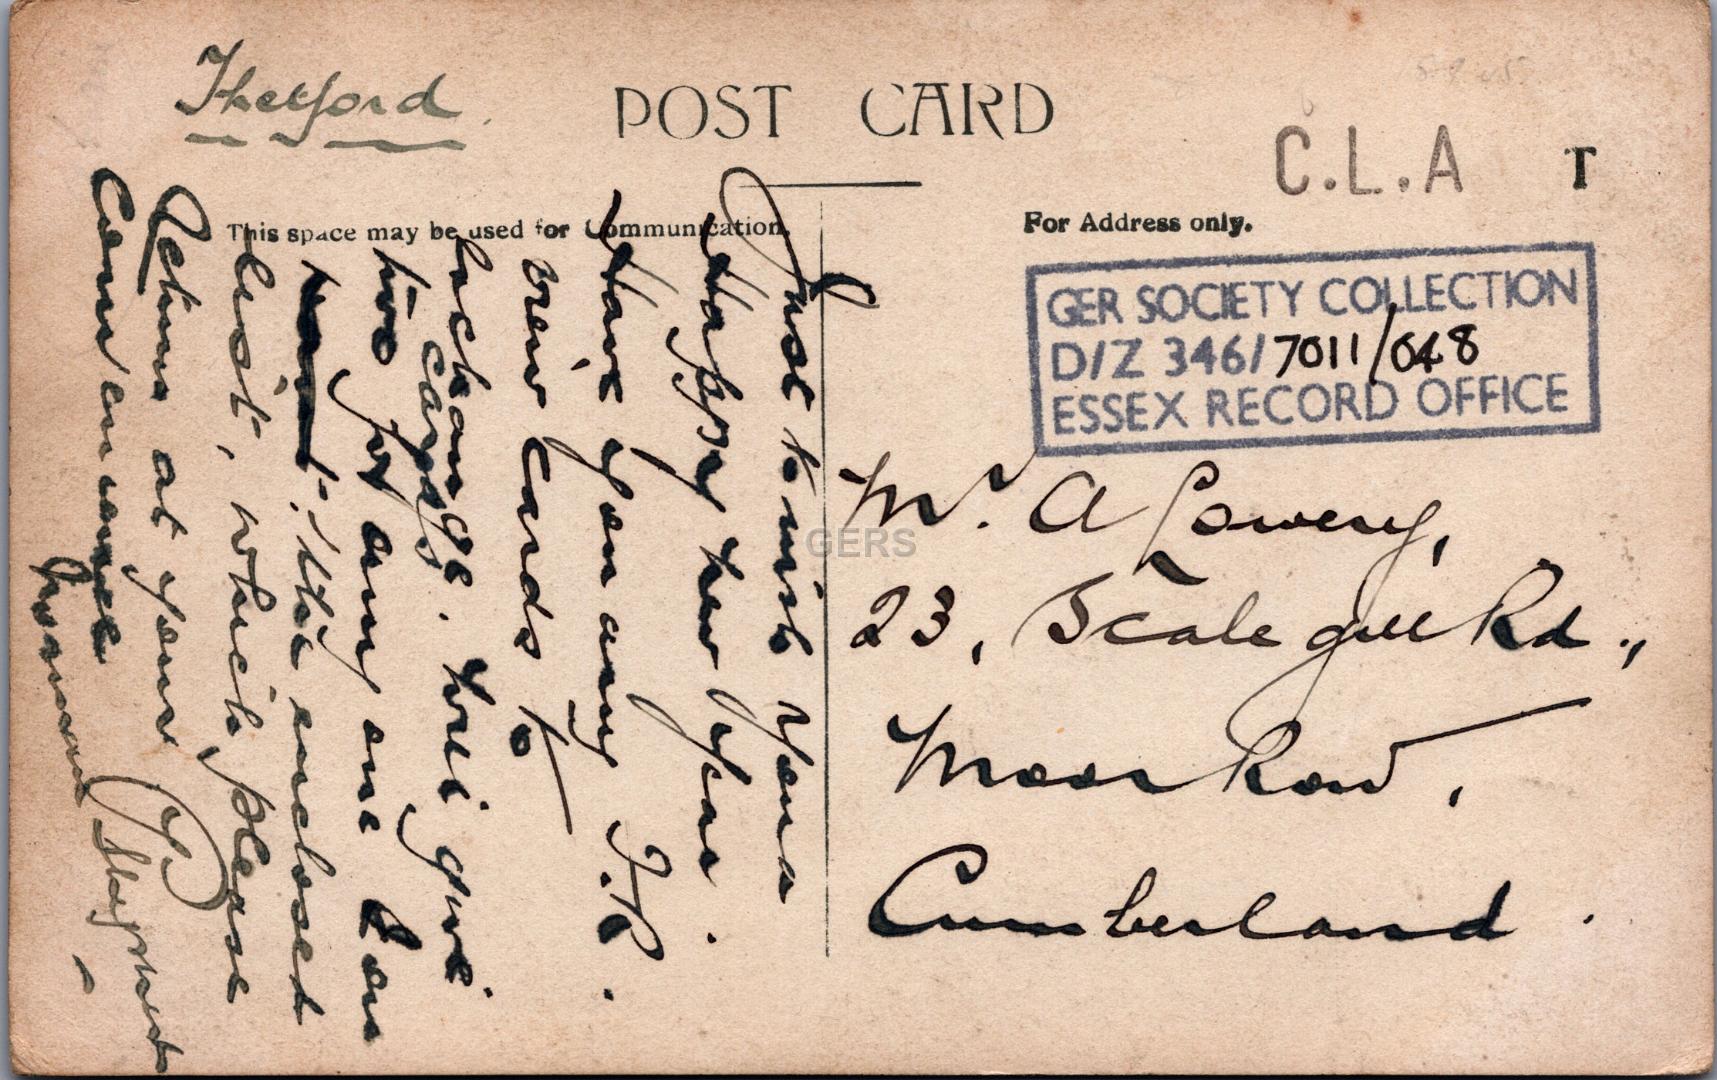 Thetford
POST CARD
C.L.A
T
This space may be used for Communication.
For Address only.
GER SOCIETY COLLECTION
D/Z 346/7011/048
ESSEX RECORD OFFICE
Mr. A Lowery,
23, Scalegill Rd.,
Moor Row,
Cumberland.
Just to wish you a
Happy New Year.
Have you any F.R.
view cards to
exchange. Will give
two cards for any one you
want. the enclosed
list, which please
return at your
convenience
Norman
GERS